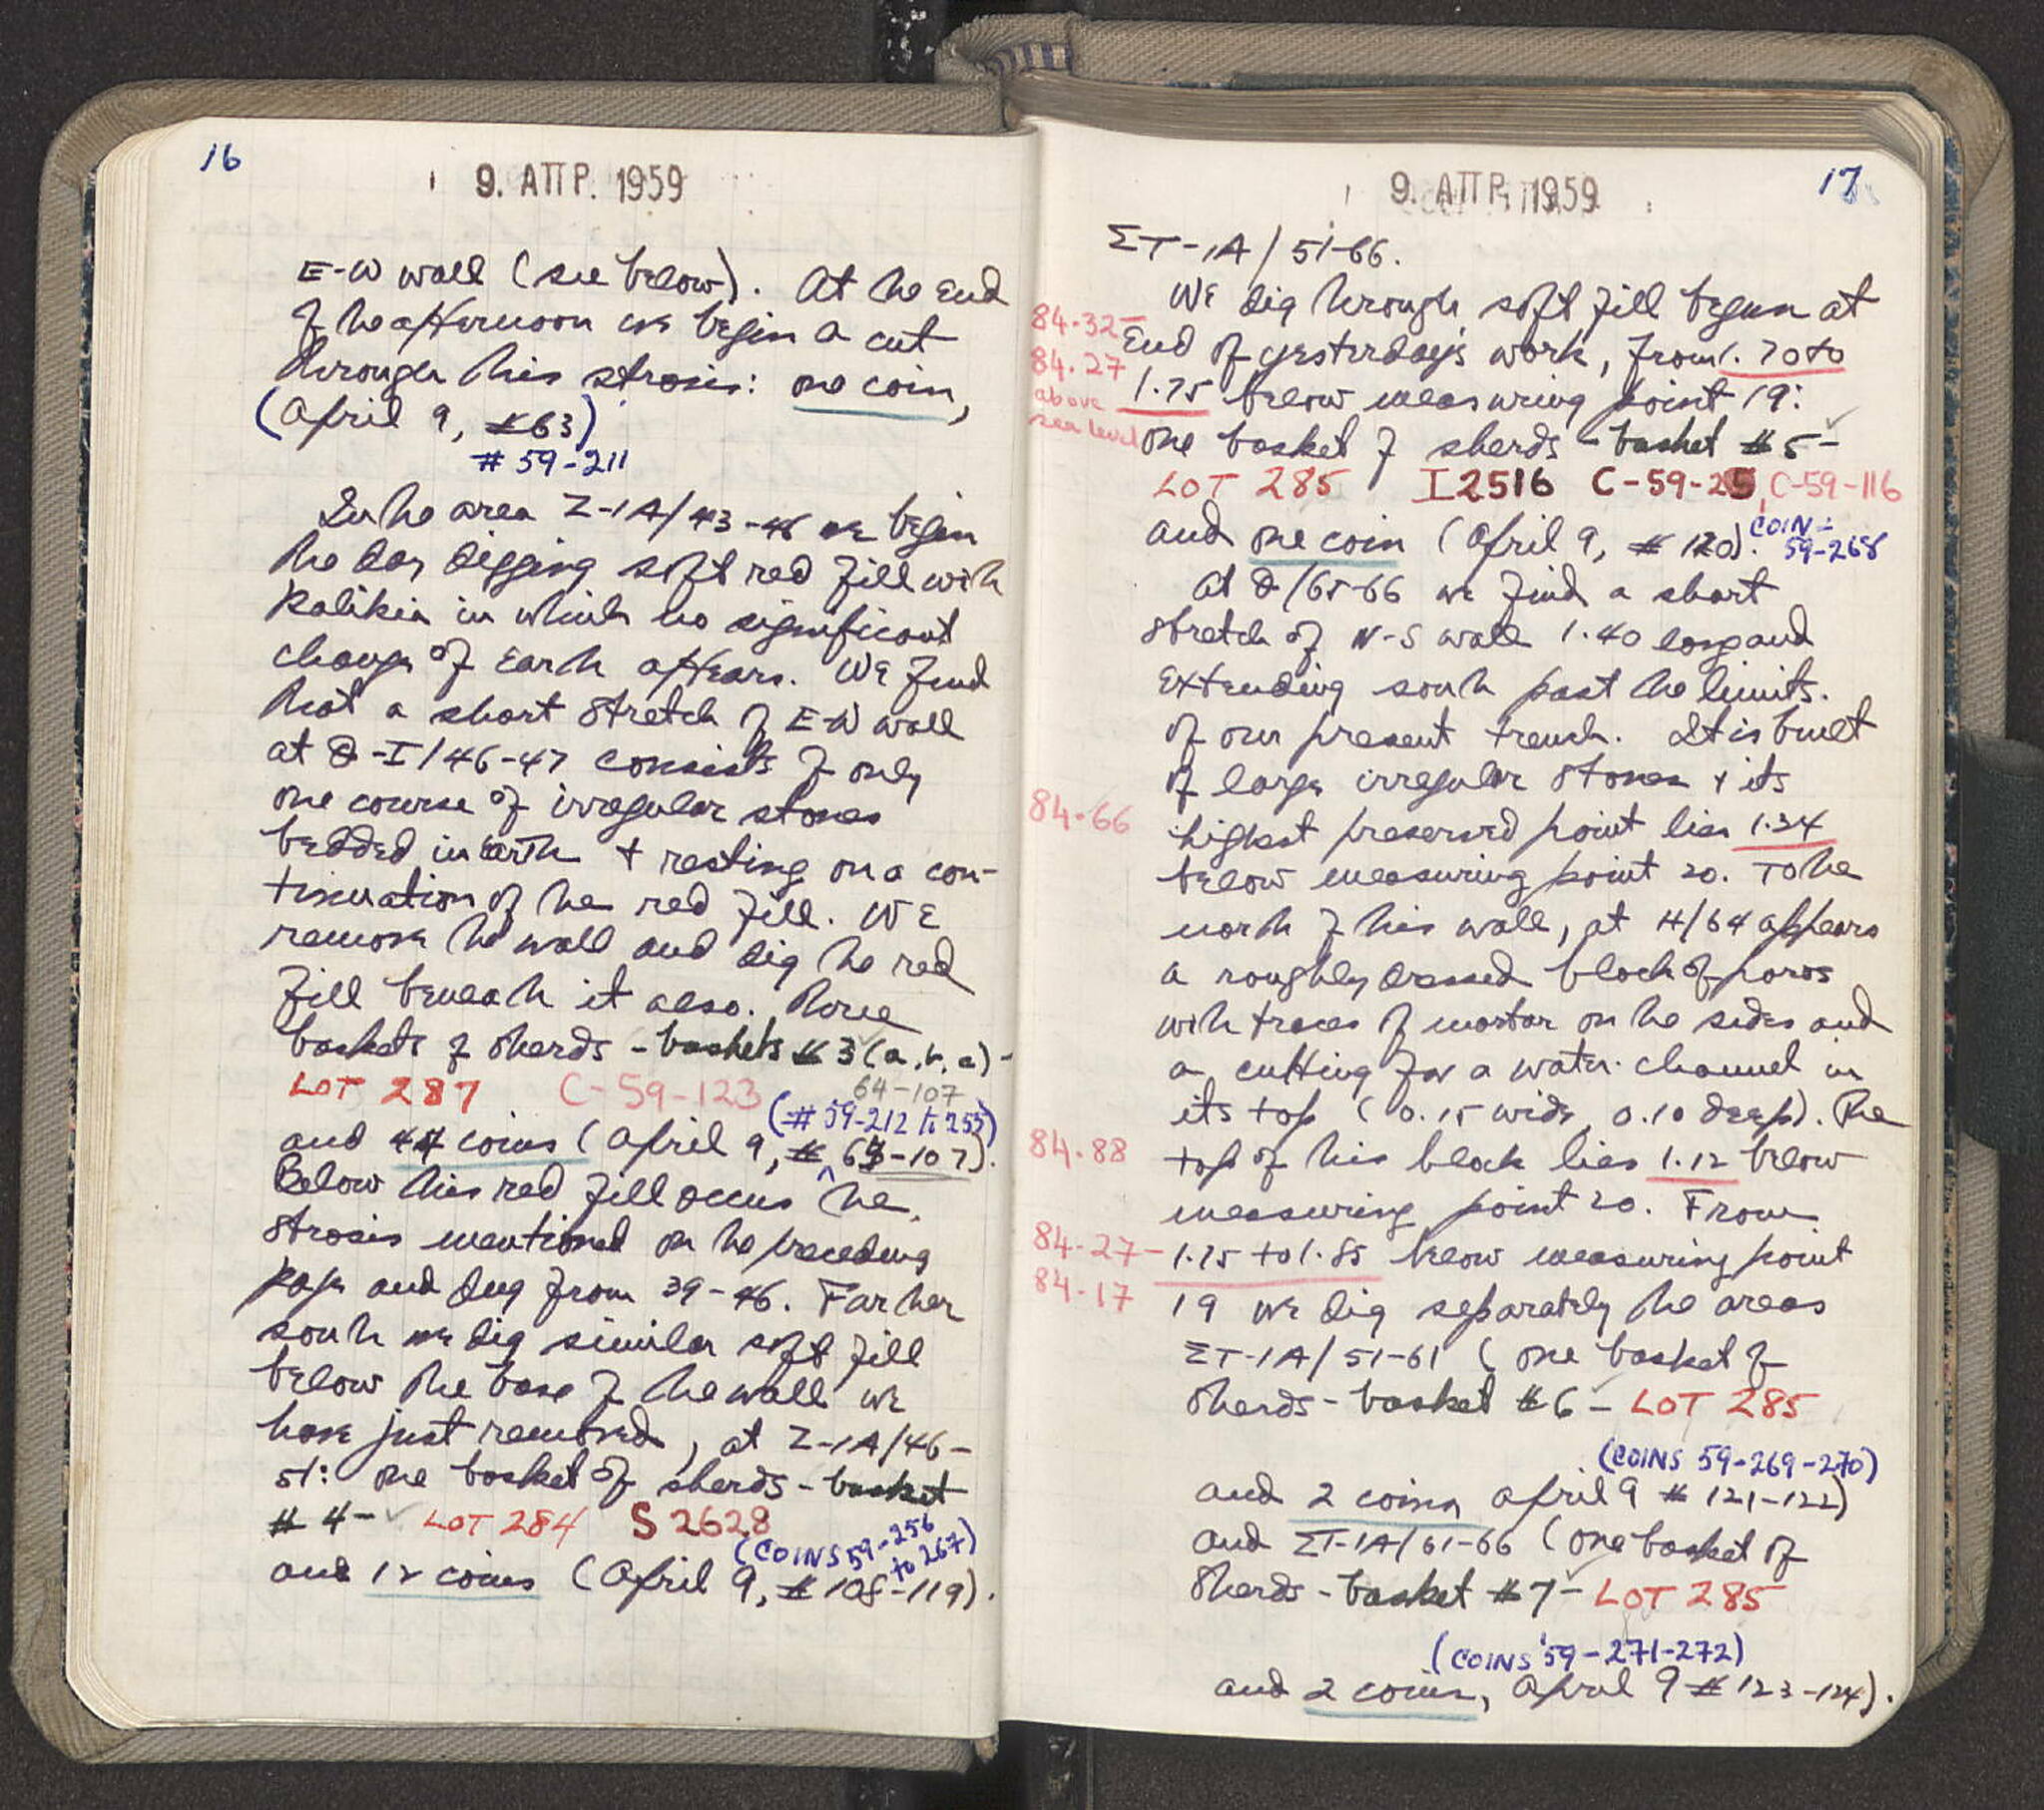 16
9. ΑΠΡ. 1959
E-W wall (see below). At the end
of the afternoon we begin a cut
through this strosis: one coin,
(April 9, #63)
# 59-211
In the area Z-IA/43-46 we begin
the day digging soft red fill with
Kalikia in which no significant
change of earth appears. We find
that a short stretch of E-W wall
at Θ-I/46-47 consists of only
one course of irregular stones
bedded in earth + resting on a con-
tinuation of the red fill. We
remove the wall and dig the red
fill beneath it also. Three
baskets of sherds - baskets #3 (a, b, c) -
LOT 287 C-59-123 64-107
(# 59-212 to 255)
and 44 coins (April 9, # 64-107).
Below this red fill occurs the
strosis mentioned on the preceding
page and dug from 39-46. Farther
south we dig similar soft fill
below the base of the wall we
have just removed, at Z-IA/46-
51: one basket of sherds - basket
#4 - LOT 284 S 2628
(COINS 59-256
to 267)
and 12 coins (April 9, # 108-119).
17
9. ΑΠΡ. 1959
ΣΤ-IA/51-66.
We dig through soft fill begun at
84.32-
end of yesterday's work, from 1.70 to
84.27
1.75 below measuring point 19:
above
sea level
one basket of sherds - basket #5 -
LOT 285 I 2516 C-59-25, C-59-116
and one coin (April 9, # 120). COIN:
59-268
At Θ/65-66 we find a short
stretch of N-S wall 1.40 long and
extending south past the limits
of our present trench. It is built
of large irregular stones + its
84.66
highest preserved point lies 1.34
below measuring point 20. To the
north of this wall, at H/64 appears
a roughly dressed block of poros
with traces of mortar on the sides and
a cutting for a water channel in
its top (0.15 wide, 0.10 deep). The
84.88
top of this block lies 1.12 below
measuring point 20. From
84.27-
1.75 to 1.85 below measuring point
84.17
19 we dig separately the areas
ΣΤ-IA/51-61 (one basket of
sherds - basket #6 - LOT 285
(COINS 59-269-270)
and 2 coins, April 9 # 121-122)
and ΣΤ-IA/61-66 (one basket of
sherds - basket #7 - LOT 285
(COINS 59-271-272)
and 2 coins, April 9 # 123-124).